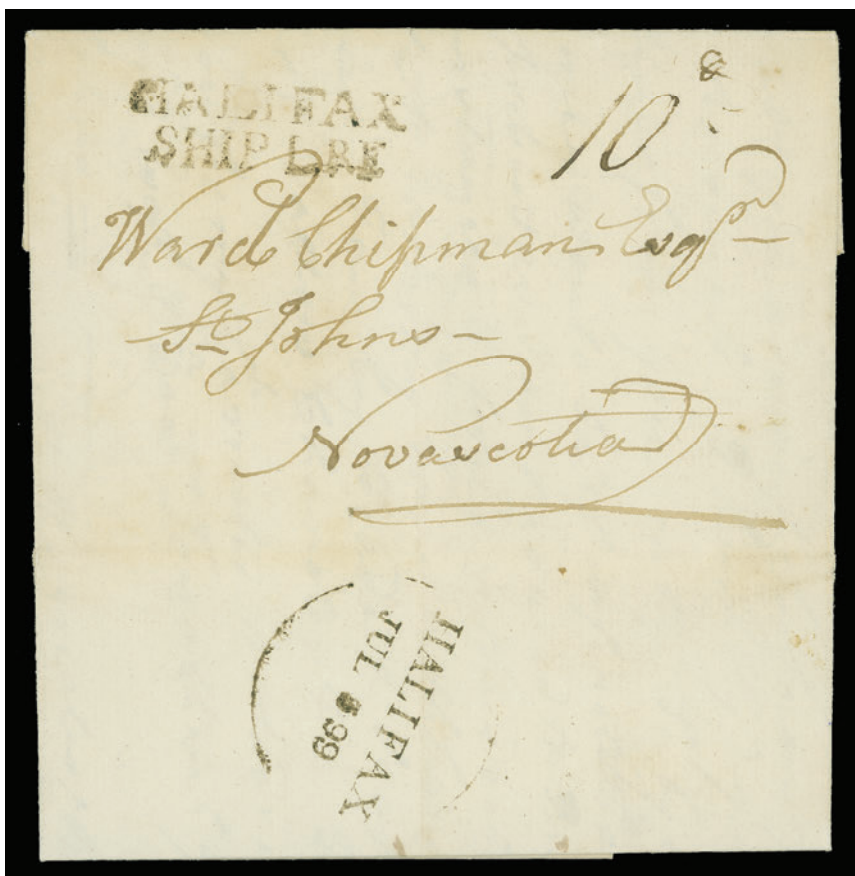 HALIFAX
SHIP LRE
10
8
Ward Chipman Esqr
St Johns
Novascotia
HALIFAX
JUL 99